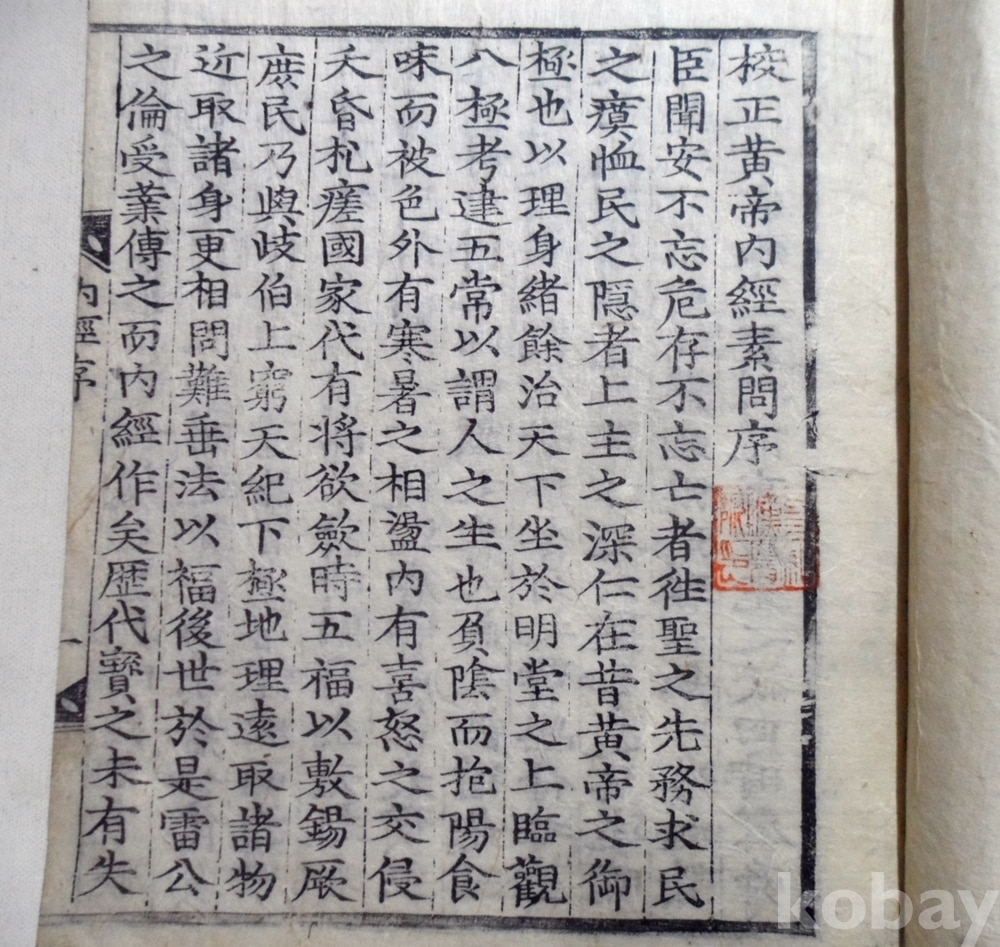 校正黃帝內經素問序
臣聞安不忘危存不忘亡者徃聖之先務求民
之瘼恤民之隠者上主之深仁在昔黃帝之御
極也以理身緒餘治天下坐於明堂之上臨觀
八極考建五常以謂人之生也負陰而抱陽食
味而被色外有寒暑之相盪内有喜怒之交侵
夭昏札瘥國家代有将欲斂時五福以敷錫厥
庶民乃與歧伯上窮天紀下極地理逺取諸物
近取諸身更相問難垂法以福後世於是雷公
之倫受業傳之而內經作矣歴代寶之未有失
內經序
一
kobay